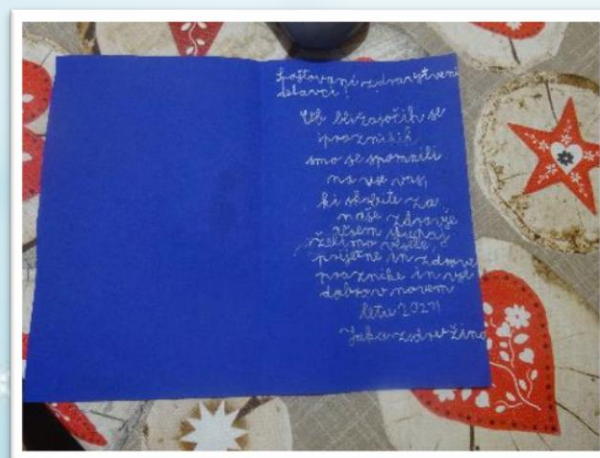 Spoštovani zdravstveni
delavci!
Ob bližajočih se
praznikih
smo se spomnili
na vse vas,
ki skrbite za
naše zdravje
Vsem skupaj
želimo vesele,
prijetne in zdrave
praznike in vse
dobro v novem
letu
Jaka z družino